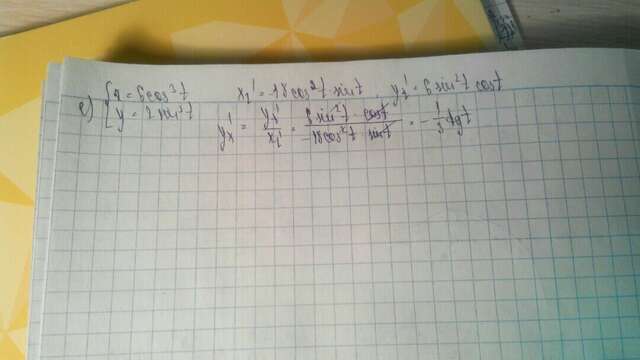 e) { x = 6cos³t x't = -18cos²t sint, y't = 6sin²t cost
y = 2sin³t y'x = y't / x't = 6sin²t · cost / -18cos²t sint = -1/3 tgt